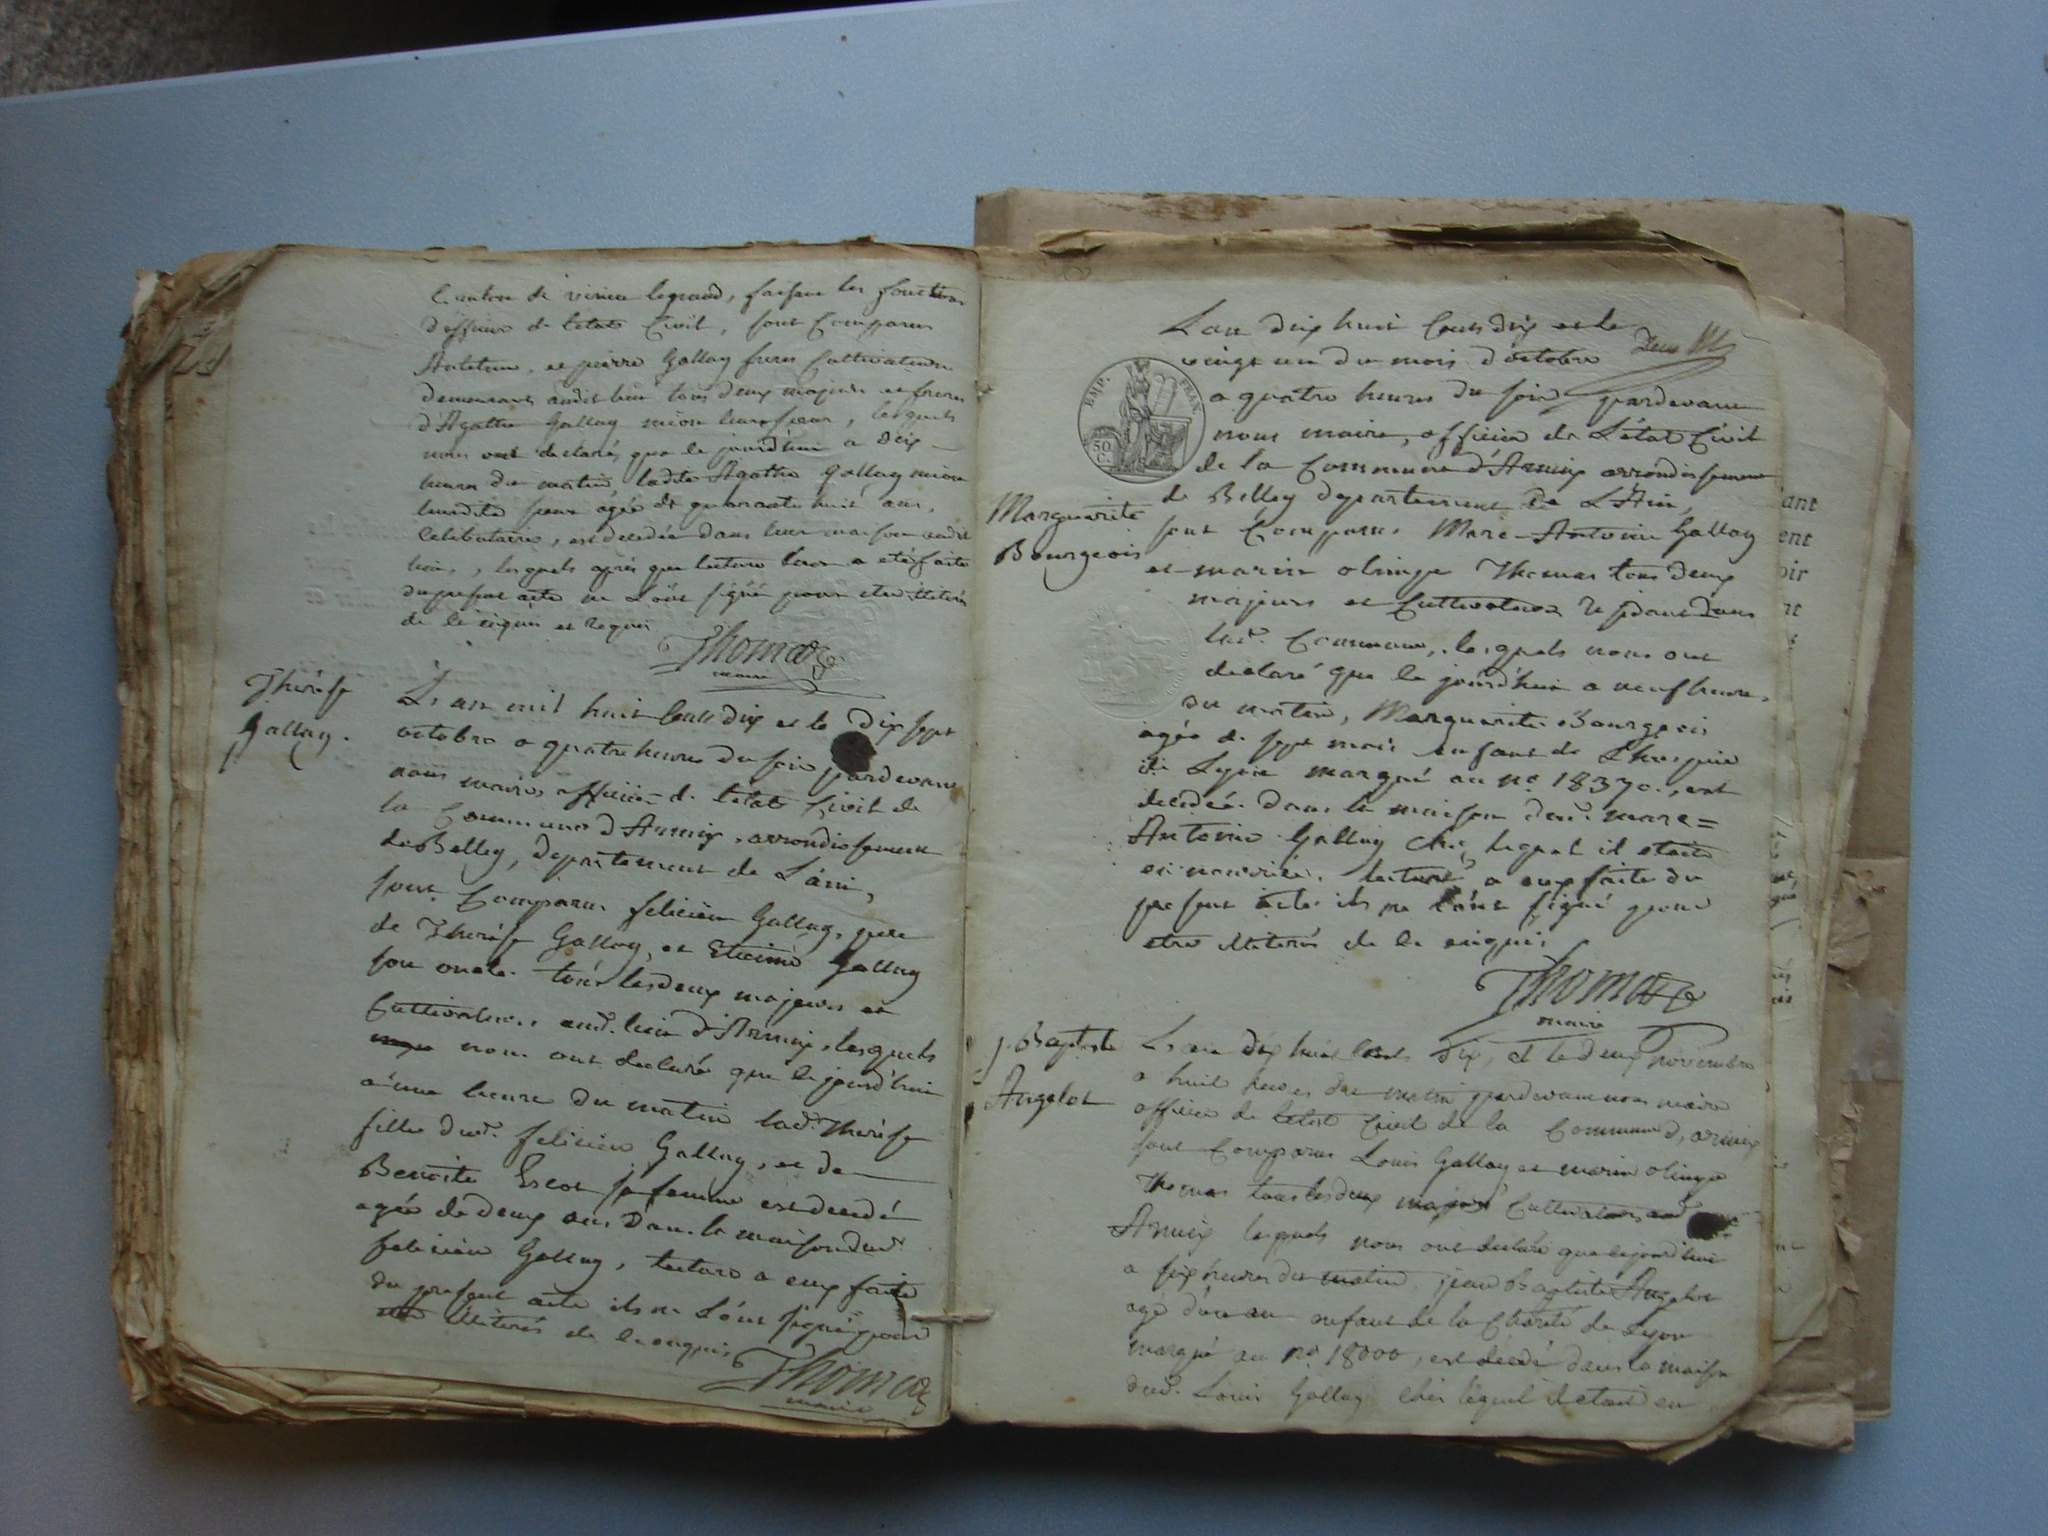 Canton de virieu legrand, faisant les fonctions
d'officier de letat Civil, sont Comparus
et pierre Gallay freres Cultivateurs
demeurant audit lieu tous deux majeurs et freres
d'Agathe Gallay mion leur soeur, lesquels
nous ont declaré que le jourd'hui a dix
heures du matin ladite Agathe Gallay mion
leurdite soeur agée de quarante huit ans,
Celibataire, est decedée dans leur maison audit
lieu, lesquels après que lecture leur a eté faite
du present acte ne l'ont signé pour etre illiteres
de le enquis et requis
Thomas
maire
Thérèse
Gallay.
L'an mil huit Cents dix et le dix sept
octobre a quatre heures du soir pardevant
nous maire officier de l'état Civil de
la Commune d'Armix, arrondissement
de Belley, departement de L'ain,
sont Comparus felicien Gallay, pere
de Therèse Gallay, et Etienne Gallay
son oncle tous les deux majeurs et
Cultivateurs aud. lieu d'Armix, lesquels
nous ont declaré que le jourd'hui
a une heure du matin lad. Therèse
fille dud. felicien Gallay, et de
Benoite Escot sa femme est decedé
agée de deux ans dans la maison dud.
felicien Gallay, lecture a eux faite
du present acte ils ne l'ont signé pour
etre illiterés de le enquis,
Thomas
maire
L'an dix huit Cents dix et le
vingt un du mois d'octobre
a quatre heures du soir pardevant
EMP. FRAN.
50 C.
nous maire, officier de L'état Civil
de la Commune d'Armix arrondissement
de Belley departement de L'Ain,
Marguerite
Bourgeois
sont Comparus Marc-Antoine Gallay
et marin olinge Thomas tous deux
majeurs et Cultivateurs residant dans
lad. Commune, lesquels nous ont
declaré que le jourd'hui a neuf heures
du matin, Marguerite Bourgeois
agée de sept mois enfant de L'hospice
de Lyon marqué au no. 18370., est
decedée dans la maison dud. marc=
Antoine Gallay chez lequel il etait
en nourrice, lecture a eux faite du
present acte ils ne l'ont signé pour
etre illiterés de le enquis,
Thomas
maire
j. Baptiste
Angelot
L'an dix huit Cents dix, et le deux novembre
a huit heures du matin pardevant nous maire
officier de letat Civil de la Commune d'armix
sont Comparus Louis Gallay et marin olinge
Thomas tous les deux majeurs Cultivateurs aud.
Armix lesquels nous ont declaré que le jourd'hui
a six heures du matin, jean Baptiste Angelot
agé d'un an enfant de la Charité de Lyon
marqué au no. 18000, est decedé dans la maison
dud. Louis Gallay chez lequel il etait en